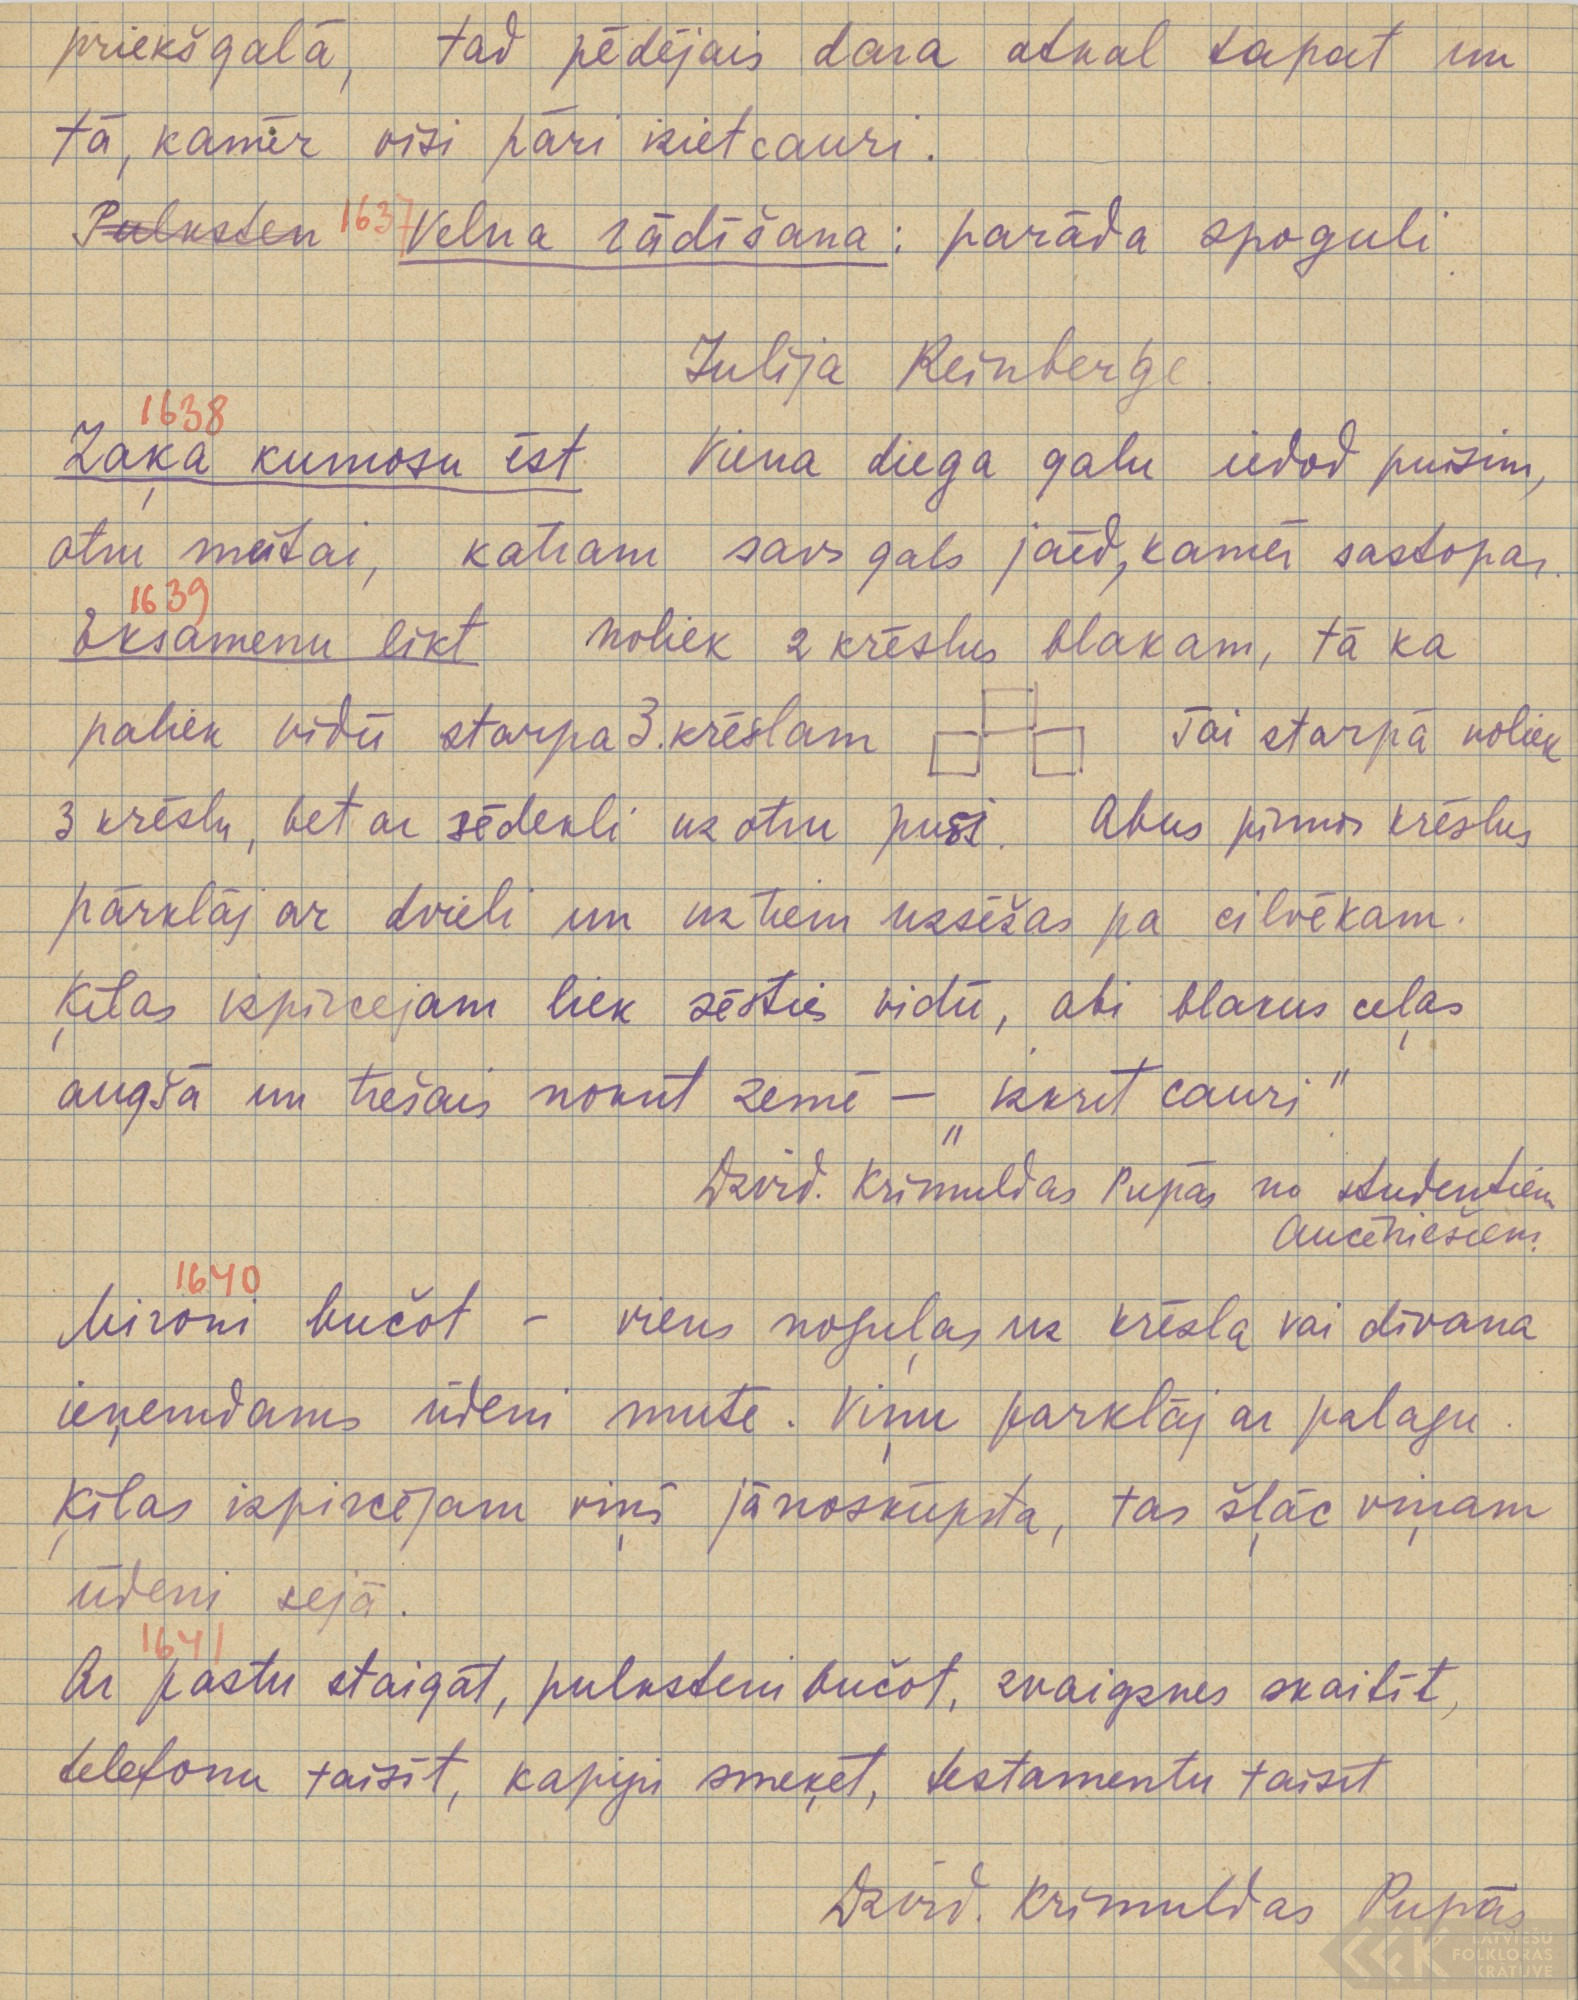 priekšgalā, tad pēdējais dara atkal tapat un
tā, kamēr visi pāri iziet cauri.
Pulksten 1637 Velna rādīšana: parāda spoguli
Julija Reinberģe.
1638
Zaķa kumosu ēst Viena diega galu iedod puisim,
otru meitai, katram savs gals jāēd, kamēr sastopas.
1639
Eksamenu likt Noliek 2 krēslus blakam, tā ka
paliek vidū starpa 3. krēslam Tai starpā noliek
3 krēslu, bet ar sēdekli uz otru pusi. Abus pirmos krēslus
pārklāj ar dvieli un uz tiem uzsēžas pa cilvēkam.
Ķīlas izpircejam liek sēsties vidū, abi blakus ceļas
augšā un trešais nokrīt zemē – „izkrīt cauri"
Dzird. Krimuldas Pupās no studentiem
Aucētniešiem.
1640
Mironi bučot – viens noguļas uz krēsla vai dīvana
ieņemdams ūdeni mutē. Viņu parklāj ar palagu.
Ķīlas izpircējam viņš jānoskūpsta, tas šļāc viņam
ūdeni sejā.
1641
Ar pastu staigāt, pulksteni bučot, zvaigznes skaitīt,
telefonu taisīt, kapiju smeķēt, testamentu taisīt
Dzird. Krimuldas Pupās
LATVIEŠU
FOLKLORAS
KRĀTUVE